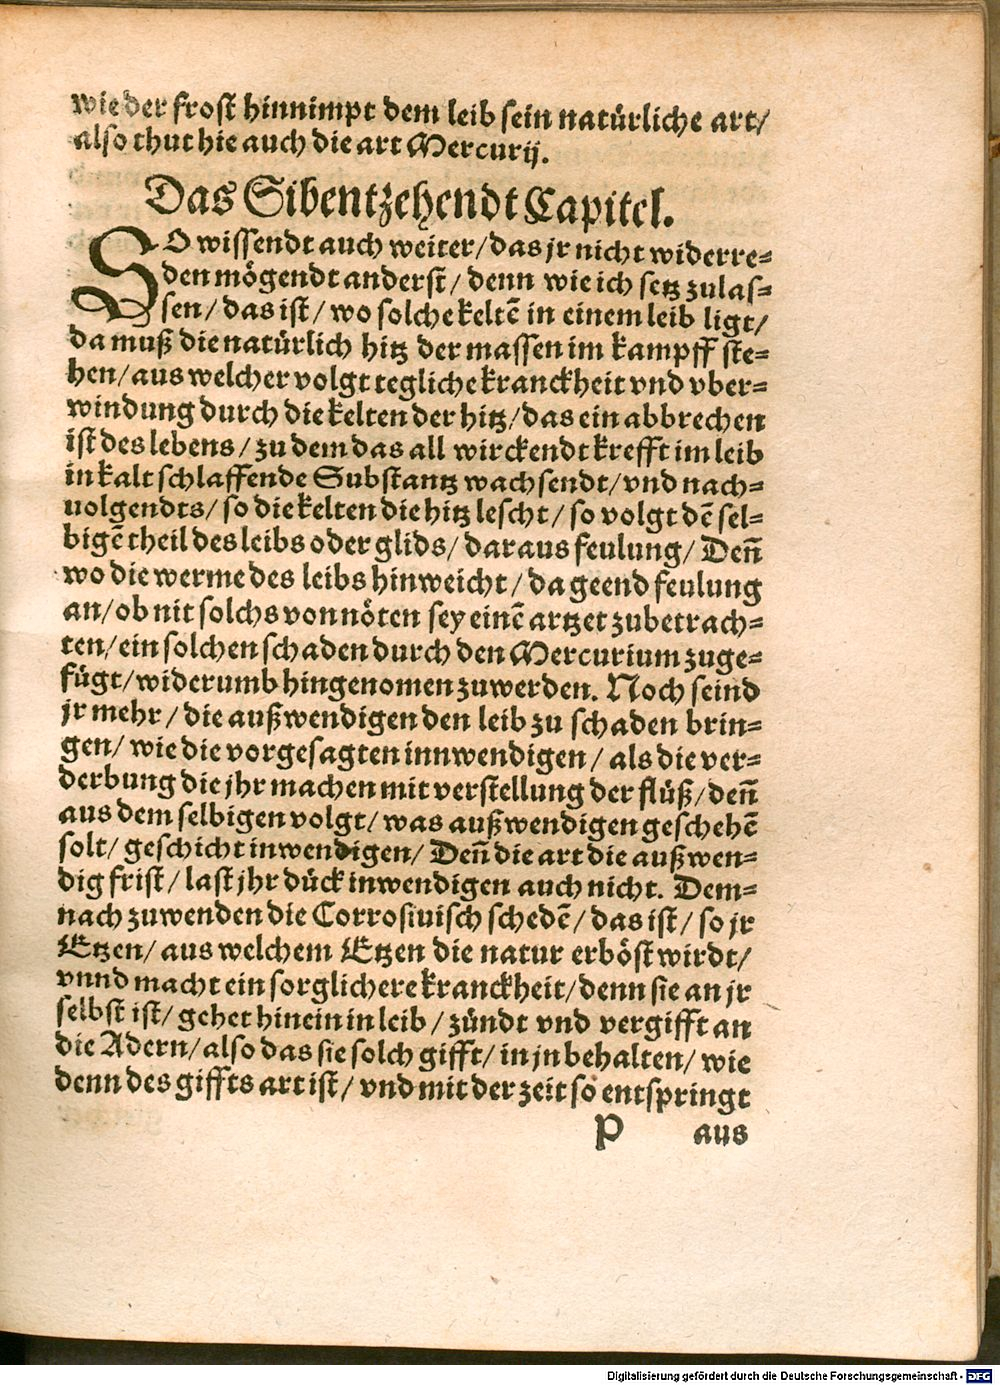 wie der frost hinnimpt dem leib sein natürliche art/
also thut hie auch die art Mercurij.
Das Sibentzehendt Capitel.
SO wissendt auch weiter/das jr nicht widerre⸗
den mögendt anderst/ denn wie ich setz zulas⸗
sen/ das ist/ wo solche keltẽ in einem leib ligt/
da muß die natürlich hitz der massen im kampff ste⸗
hen/ aus welcher volgt tegliche kranckheit vnd vber⸗
windung durch die kelten der hitz/das ein abbrechen
ist des lebens/ zu dem das all wirckendt krefft im leib
in kalt schlaffende Substantz wachsendt/vnd nach⸗
uolgendts/ so die kelten die hitz lescht/ so volgt dẽ sel⸗
bigẽ theil des leibs oder glids/ daraus feulung/ Deñ
wo die werme des leibs hinweicht/ da geend feulung
an/ ob nit solchs von nöten sey einẽ artzet zubetrach⸗
ten/ ein solchen schaden durch den Mercurium zuge⸗
fügt/ widerumb hingenomen zuwerden. Noch seind
jr mehr/ die außwendigen den leib zu schaden brin⸗
gen/ wie die vorgesagten innwendigen/ als die ver⸗
derbung die jhr machen mit verstellung der flüß/ deñ
aus dem selbigen volgt/ was außwendigen geschehẽ
solt/ geschicht inwendigen/ Deñ die art die außwen⸗
dig frist/ last jhr dück inwendigen auch nicht. Dem⸗
nach zuwenden die Corrosiuisch schedẽ/ das ist/ so jr
Etzen/ aus welchem Etzen die natur erböst wirdt/
vnnd macht ein sorglichere kranckheit/denn sie an jr
selbst ist/ gehet hinein in leib/ zündt vnd vergifft an
die Adern/ also das sie solch gifft/ in jn behalten/ wie
denn des giffts art ist/ vnd mit der zeit so entspringt
P aus
Digitalisierung gefördert durch die Deutsche Forschungsgemeinschaft - DFG